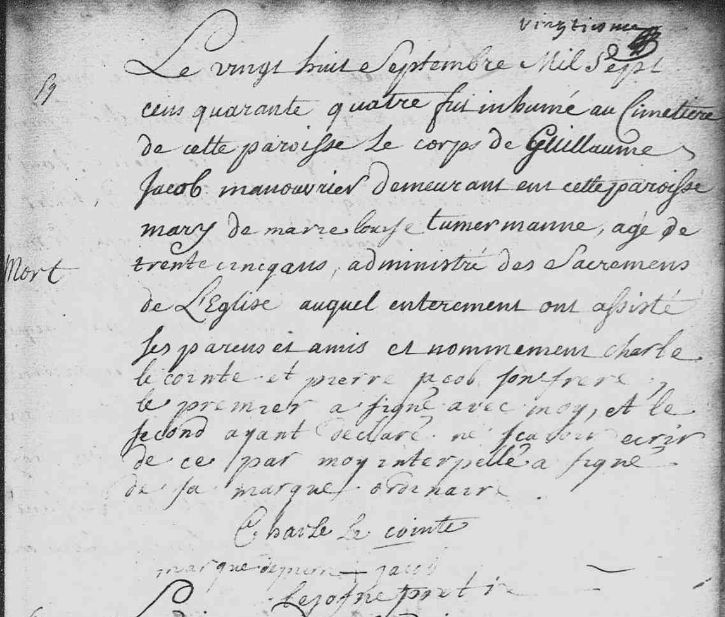 vingtieme
Le vingt huit Septembre Mil Sept
cens quarante quatre fut inhumé au Cimetiere
de cette paroisse Le corps de Guillaume
Jacob manouvrier demeurant en cette paroisse
mary de marie louise tumermanne, agé de
trente cincq ans, administré des Sacremens
Mort
de L'Eglise auquel enterement ont assisté
ses parens et amis et nommement charle
le cointe et pierre jacob son frere,
le premier a signé avec moy, et le
second ayant declaré ne scavoir ecrir
de ce par moy interpellé a signé
de sa marque ordinaire.
Charle le cointe
marque de pierre — jacob